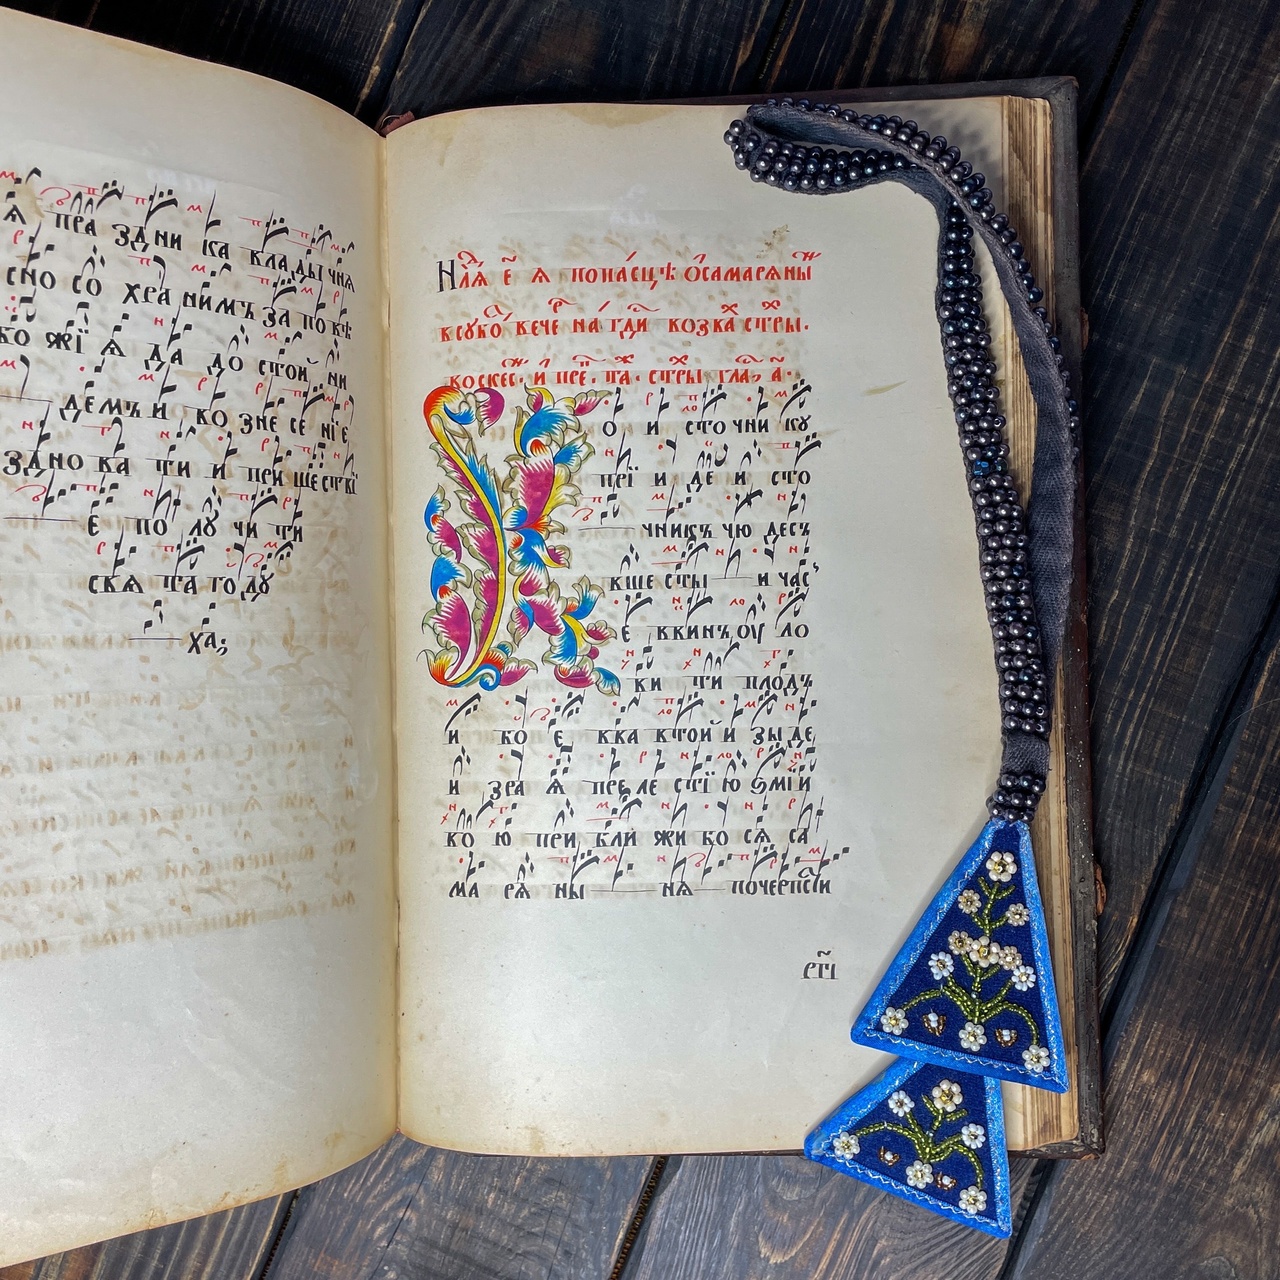 ѧ пра здни ка вла ды чнѧ
сно со хра нимъ за по вѣ
ко жї ѧ да до стой ни
демъ и во зне се нї е
здно ва ти и при ше ствї
е по лу чи ти
свѧ та го ду
ха;
Нлѧ е ѧ по па сцѣ ѡ самарѧны
въ суко вече на гди возва стры.
воскес. и пре. та. стры гла, а.
о и сточни ку
прї и де и сто
чникъ чю десъ
вше сты и час
е ввинъ оу ло
ви ти плодъ
и бо е вва втой и зы де
и зра ѧ пре ле стї ю ѕмїи
во ю при бли жи во сѧ са
ма рѧ ны нѧ почерпсти
рп҃і